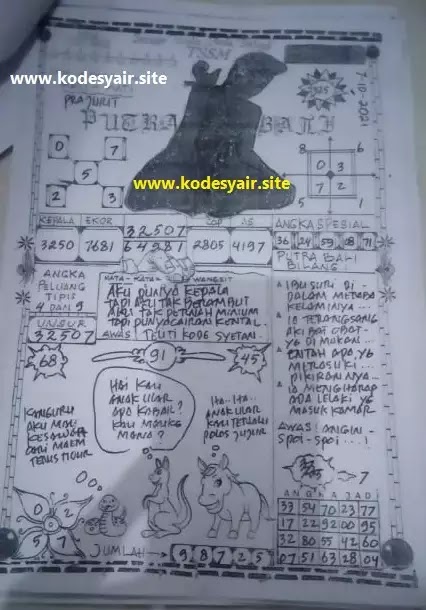 TSSM
www.kodesyair.site
7-10-2021
PRAJURIT
PUTRA BALI
0 7
5
2 3
8 6
0 3
7 2
5 1
www.kodesyair.site
KEPALA EKOR
32507
COP AS
3250 7681 64981 2805 4197
ANGKA SPESIAL
36 24 59 28 71
PUTRA BALI
BILANG
ANGKA
PELUANG
TIPIS
4 DAN 9
UNSUR
32507
KATA-KATA WANGSIT
AKU PUNYA KEPALA
TAPI AKU TAK BERAMBUT
AKU TAK PERNAH MINUM
TAPI PUNYA CAIRAN KENTAL..
AWAS IKUTI KODE SYETAN..
IBU SURI DI
DALAM
KELAMINNYA...
IA TERANGSANG
DI MAKAN...
ENTAH ADA YG
MERASUKI
PIKIRANNYA...
IA MENGHARAP
ADA LELAKI YG
MASUK KAMAR
AWAS! ANGIN-
SPOI-SPOI....!
68
91
45
HAI KAU
ANAK ULAR
APA KABAR?
KAU
MANA?
HA..HA..
ANAK ULAR
KAU TERLALU
POLOS JUJUR
KANGURU
AKU
DARI
TERUS TIDUR
7
ANGKA JADI
33 54 70 23 77
17 22 92 00 95
32 80 55 42 60
07 51 63 28 04
0 2
5 7
JUMLAH → 9 8 7 2 5